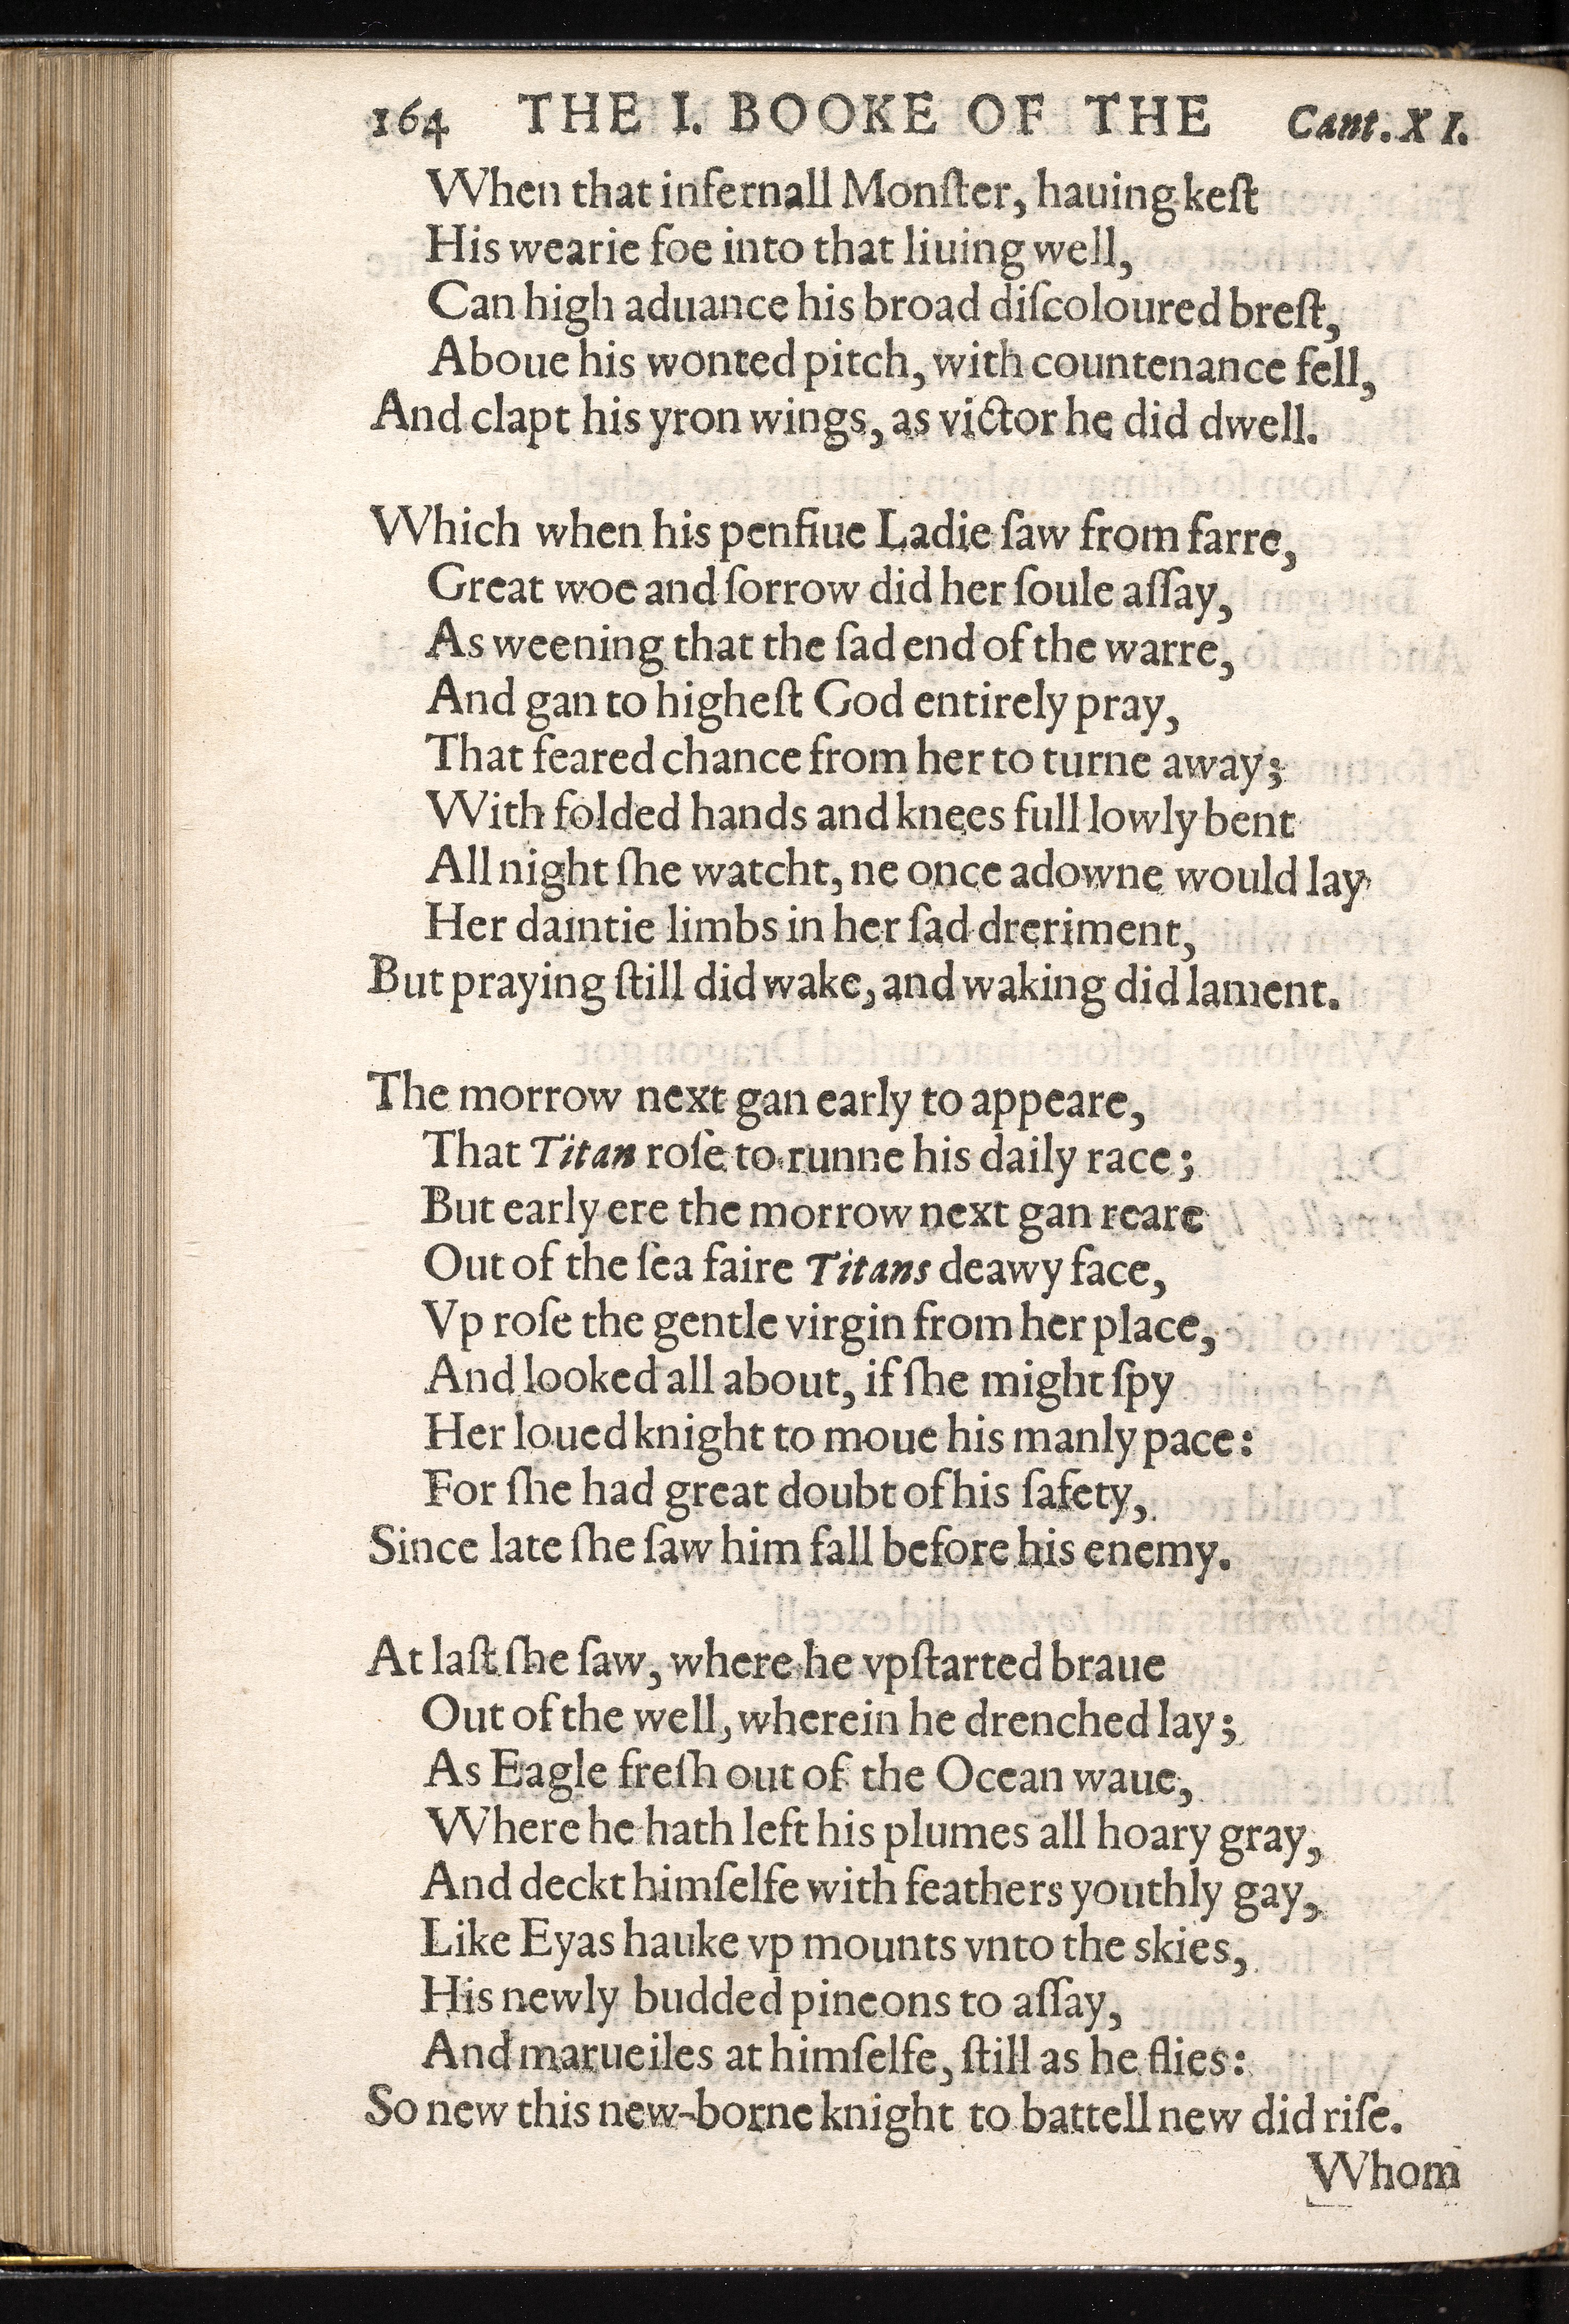 164 THE I. BOOKE OF THE Cant. XI.
When that infernall Monſter, hauing keſt
His wearie foe into that liuing well,
Can high aduance his broad diſcoloured breſt,
Aboue his wonted pitch, with countenance fell,
And clapt his yron wings, as victor he did dwell.
Which when his penſiue Ladie ſaw from farre,
Great woe and ſorrow did her ſoule aſſay,
As weening that the ſad end of the warre,
And gan to higheſt God entirely pray,
That feared chance from her to turne away;
With folded hands and knees full lowly bent
All night ſhe watcht, ne once adowne would lay
Her daintie limbs in her ſad dreriment,
But praying ſtill did wake, and waking did lament.
The morrow next gan early to appeare,
That Titan roſe to runne his daily race;
But early ere the morrow next gan reare
Out of the ſea faire Titans deawy face,
Vp roſe the gentle virgin from her place,
And looked all about, if ſhe might ſpy
Her loued knight to moue his manly pace:
For ſhe had great doubt of his ſafety,
Since late ſhe ſaw him fall before his enemy.
At laſt ſhe ſaw, where he vpſtarted braue
Out of the well, wherein he drenched lay;
As Eagle freſh out of the Ocean waue,
Where he hath left his plumes all hoary gray,
And deckt himſelfe with feathers youthly gay,
Like Eyas hauke vp mounts vnto the skies,
His newly budded pineons to aſſay,
And marueiles at himſelfe, ſtill as he flies:
So new this new-borne knight to battell new did riſe.
Whom